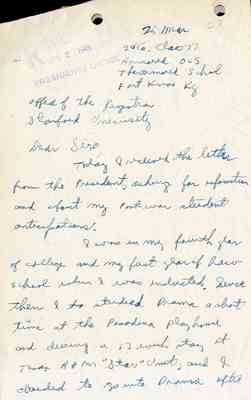 21 Mar
Armored OCS
The Armored School
Fort Knox Ky
Office of the Registrar
Stanford University
Dear Sirs
Today I received the letter
from the President, asking for information
and about my Post war student
anticipations.
I was in my fourth year
of college and my first year of Law
school when I was inducted, Since
then I studied Drama a short
time at the Pasadena Playhouse
and during a 13 week stay at
Texas A & M "Star" Unit, and I
decided to go into Drama after